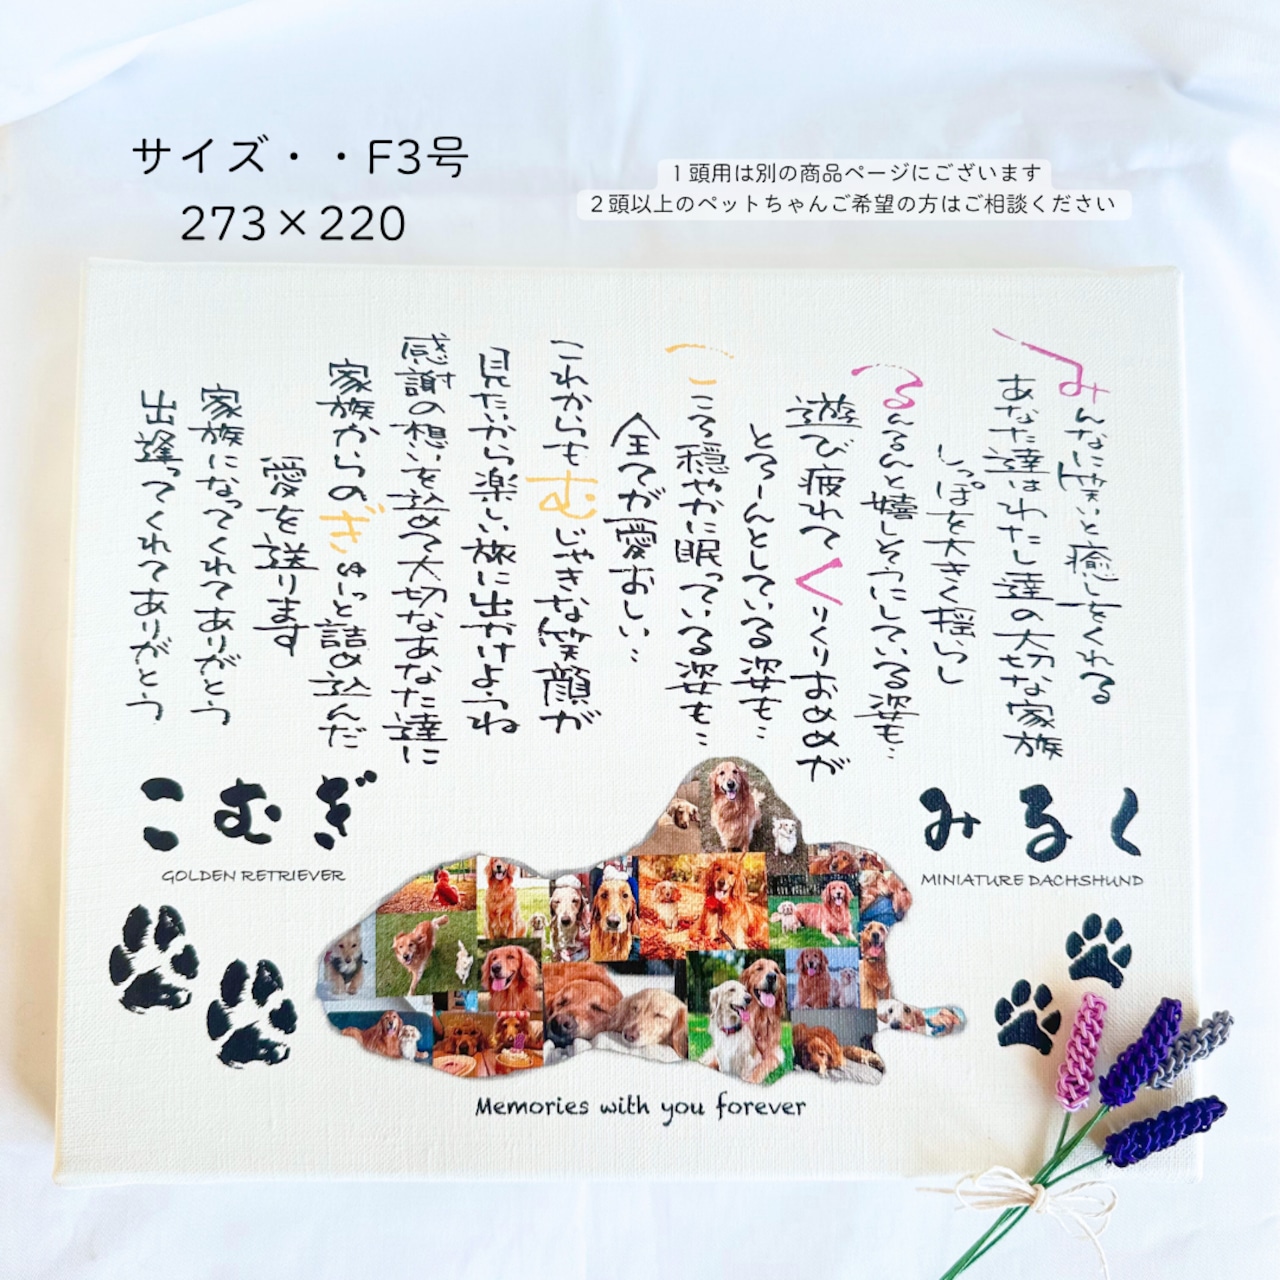 サイズ・・F3号
273×220
1頭用は別の商品ページにございます
2頭以上のペットちゃんご希望の方はご相談ください
みんなに笑いと癒しをくれる
あなた達はわたし達の大切な家族
しっぽを大きく揺らし
るんるんと嬉しそうにしている姿も‥
遊び疲れてくりくりおめめが
とろーんとしている姿も‥
こころ穏やかに眠っている姿も‥
全てが愛おしい‥
これからもむじゃきな笑顔が
見たいから楽しい旅に出かけようね
感謝の想いを込めて大切なあなた達に
家族からのぎゅーっと詰め込んだ
愛を送ります
家族になってくれてありがとう
出逢ってくれてありがとう
こむぎ
GOLDEN RETRIEVER
みるく
MINIATURE DACHSHUND
Memories with you forever